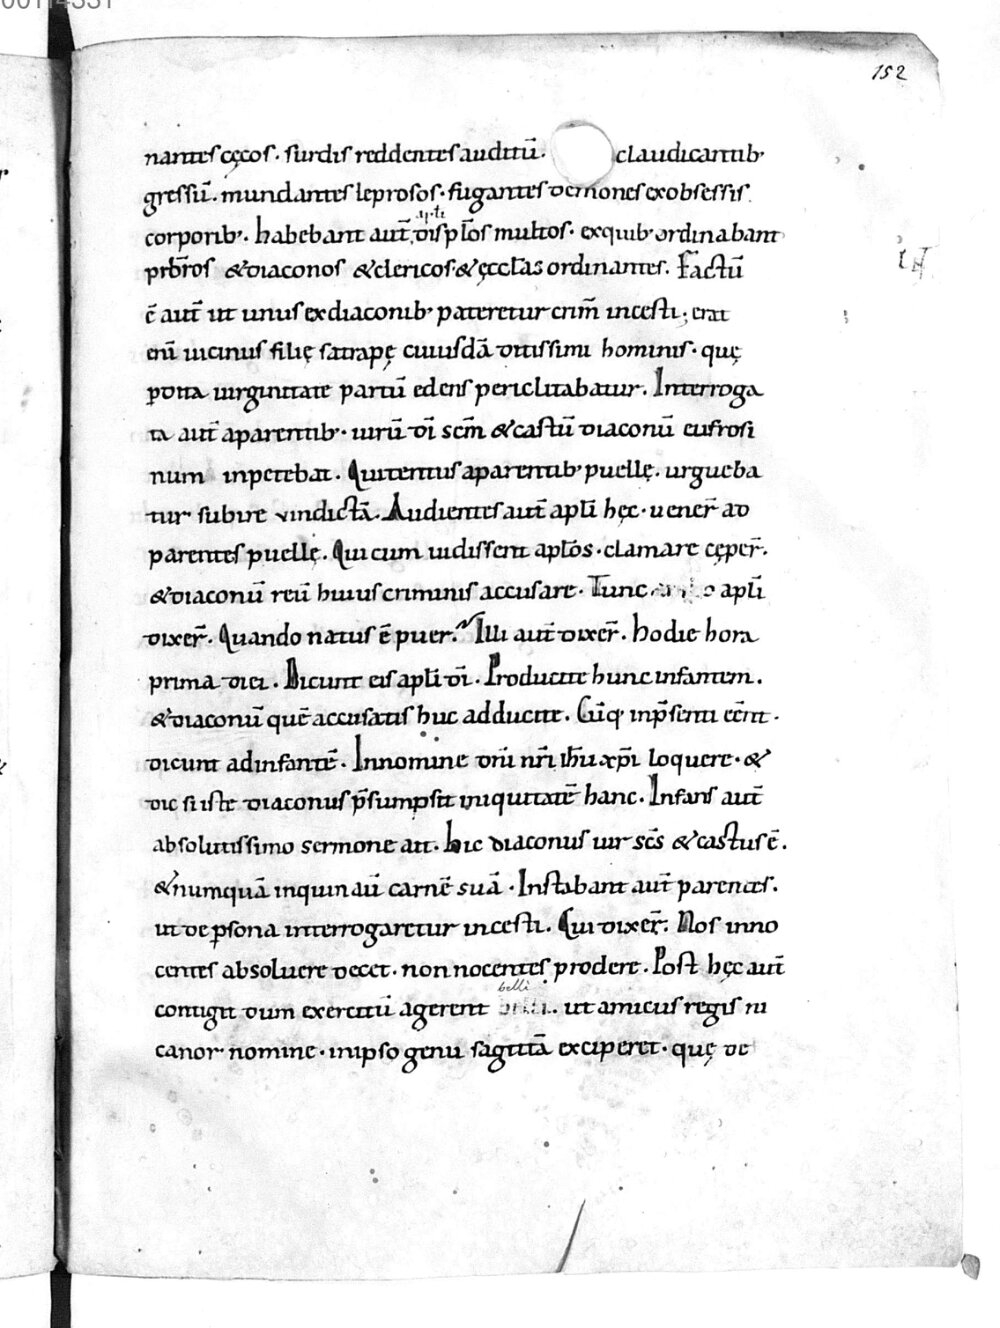 152
nantes cęcos · surdis reddentes auditū · claudicantib'
gressū · mundantes leprosos · fugantes demones ex obsessis
apłi
corporib' . habebant aut̄ discip̄los multos · ex quib' ordinabant
prb̄ros &diaconos &clericos · &ęcclas̄ ordinantes . Factū
ē aut̄ ut unus ex diaconib' pateretur crim̄ incesti ; erat
eni̅ uicinus filię satrapę cuiusdā ditissimi hominis · quę
p̄dita uirginitate partū edens periclitabatur . Interroga
ta aut̄ a parentib' · uirū dī sc̄m &castū diaconū eufrosi
num inpetebat . Qui tentus a parentib' puellę . urgueba
tur subire vindictā . Audientes aut̄ apłi hęc · uener̄ ad
parentes puellę . Qui cum uidissent apłos · clamare cęper̄ .
&diaconū reū huius criminis accusare · Tunc apłi
dixer̄ . Quando natus ē puer . Illi aut̄ dixer̄ . hodie hora
prima diei . Dicunt eis apłi dī . Producite hunc infantem .
&diaconū quē accusatis huc adducite . Cūq' in p̄senti eēnt ·
dicunt ad infantē . In nomine dn̄i nr̄i ihū xp̄i loquere · &
dic si iste diaconus p̄sumpsit iniquitatē hanc . Infans aut̄
absolutissimo sermone ait . hic diaconus uir sc̄s &castus ē .
&numquā inquinau̅ carnē suā · Instabant aut̄ parentes .
ut de p̄sona interrogaretur incesti . Qui dixer̄ . Nos inno
centes absoluere decet · non nocentes prodere . Post hęc aut̄
belli
contigit dum exercitū agerent . ut amicus regis ni
canor nomine · in ipso genu sagittā exciperet · quę de